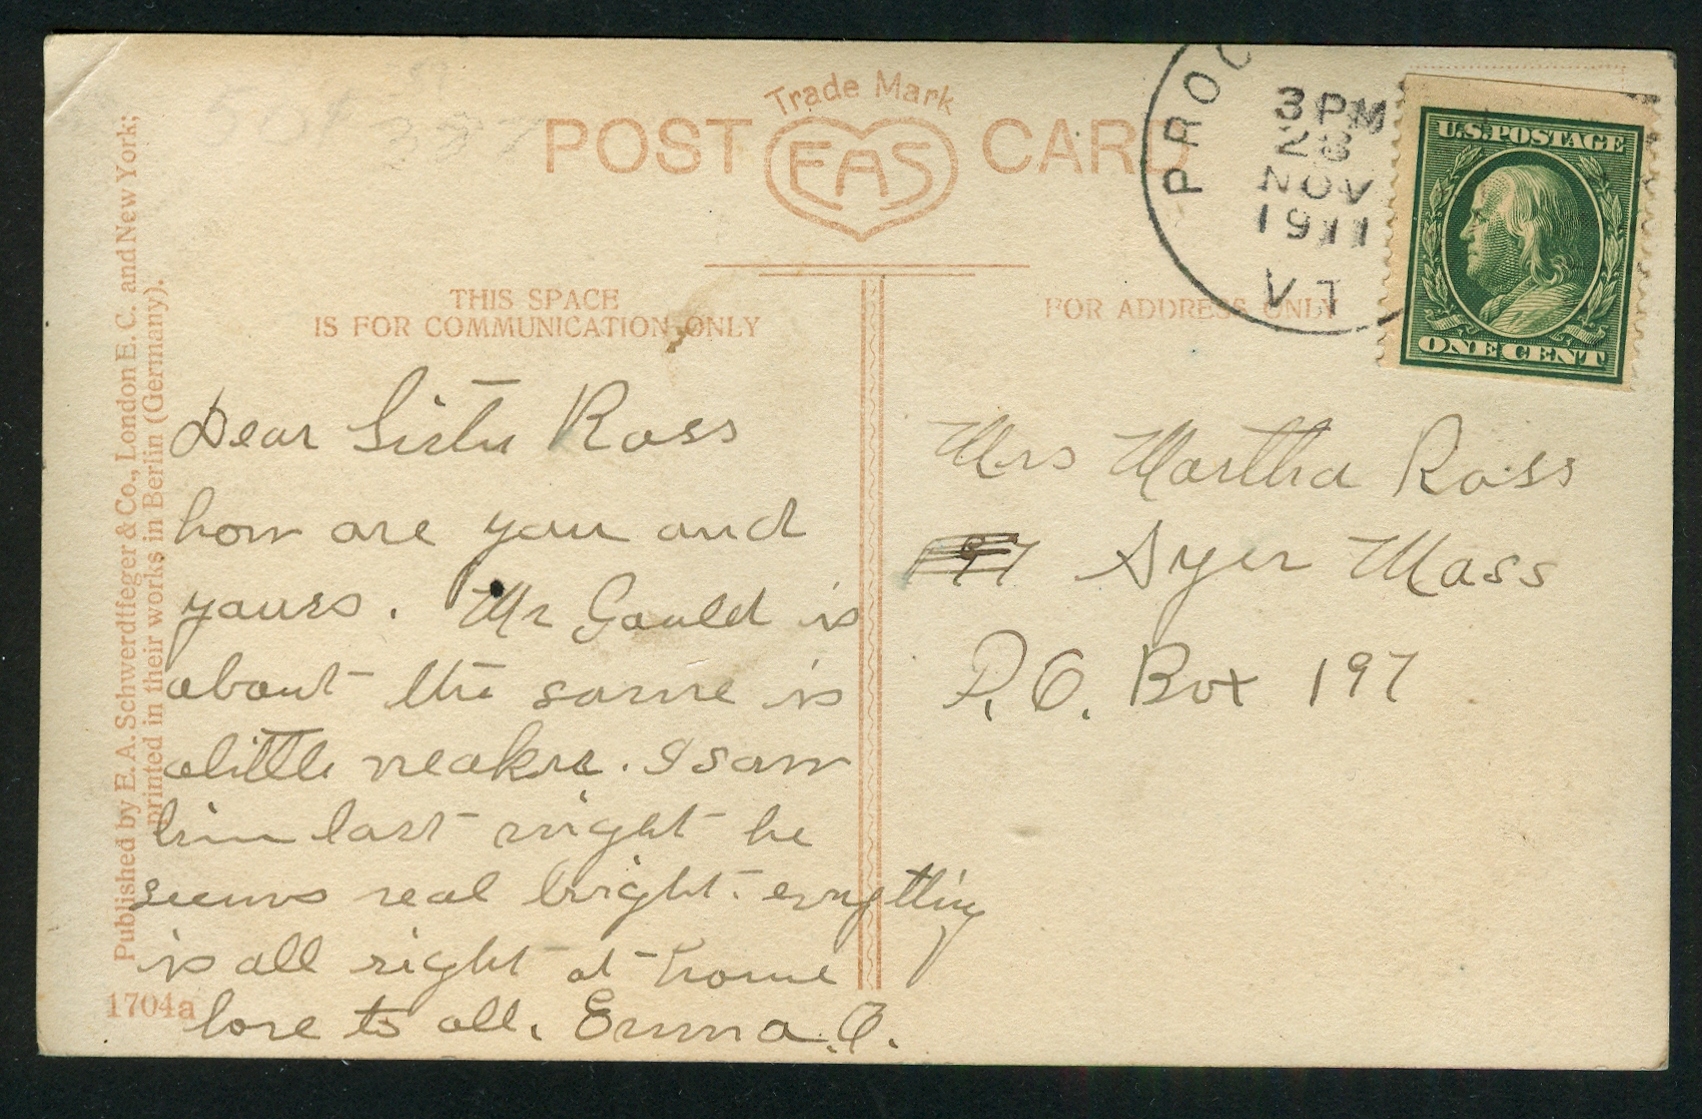 Trade Mark
POST CARD
EAS
PROC
3 PM
28
NOV
1911
VT
U.S. POSTAGE
ONE CENT
THIS SPACE
IS FOR COMMUNICATION ONLY
FOR ADDRESS ONLY
Dear Sister Ross
how are you and
yours. Mr Gauld is
about the same is
a little weaker. I saw
him last night he
seems real bright. everything
is all right at home
love to all. Emma. O.
Mrs Martha Ross
197 Ayer Mass
P.O. Box 197
Published by E. A. Schwerdtfeger & Co., London E. C. and New York;
printed in their works in Berlin (Germany).
1704a